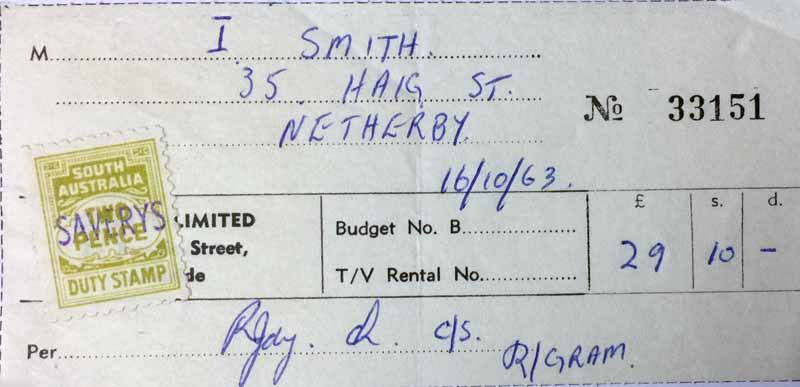 M I SMITH.
35 HAIG ST.
NETHERBY.
№ 33151
16/10/63.
SOUTH
AUSTRALIA
TWO
SAVERYS
PENCE
DUTY STAMP
LIMITED
Street,
de
Budget No. B
T/V Rental No.
£ s. d.
29 10 –
Per c/s.
R/GRAM.